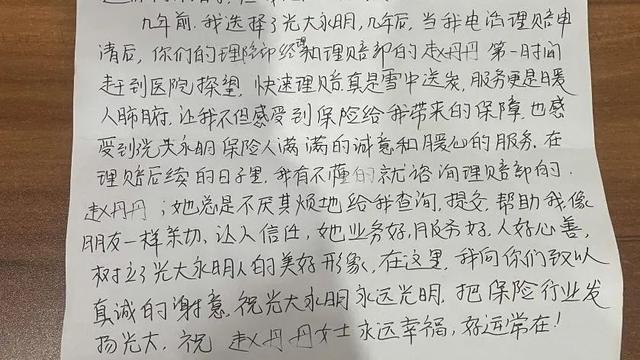 几年前，我选择了光大永明，几年后，当我电话理赔申
请后，你们的理赔部经理和理赔部的赵丹丹第一时间
赶到医院探望，快速理赔真是雪中送炭，服务更是暖
人肺府，让我不但感受到保险给我带来的保障，也感
受到光大永明保险人满满的诚意和暖心的服务，在
理赔后续的日子里，我有不懂的就谘询理赔部的，
赵丹丹；她总是不厌其烦地给我查询、提交、帮助我，像
朋友一样亲切、让人信任，她业务好，服务好，人好心善，
树立了光大永明人的美好形象，在这里，我向你们致以
真诚的谢意，祝光大永明永远光明，把保险行业发
扬光大，祝赵丹丹女士永远幸福，好运常在！